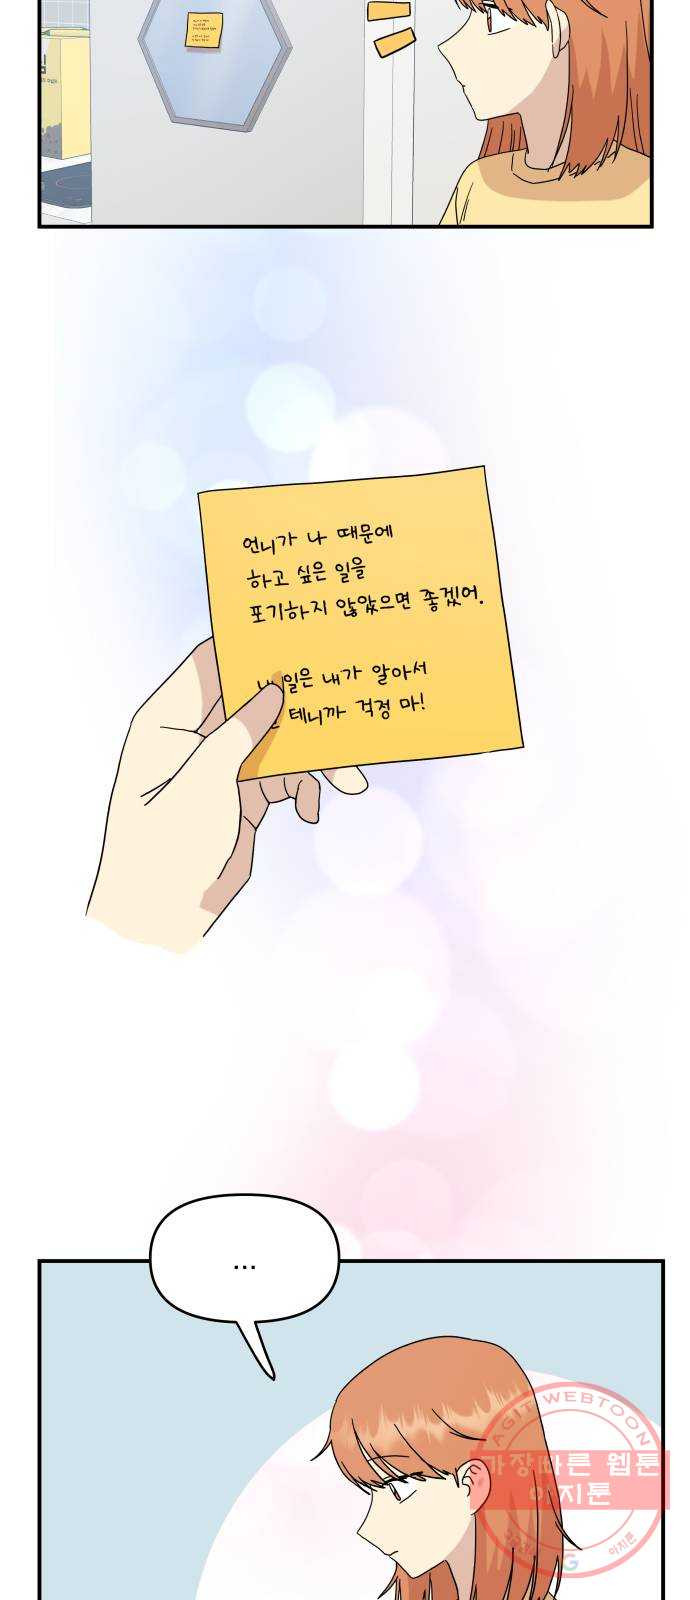 언니가 나 때문에
하고 싶은 일을
포기하지 않았으면 좋겠어.
내 일은 내가 알아서
테니까 걱정 마!
...
AGIT WEBTOON
가장빠른 웹툰
아지툰
아지툰